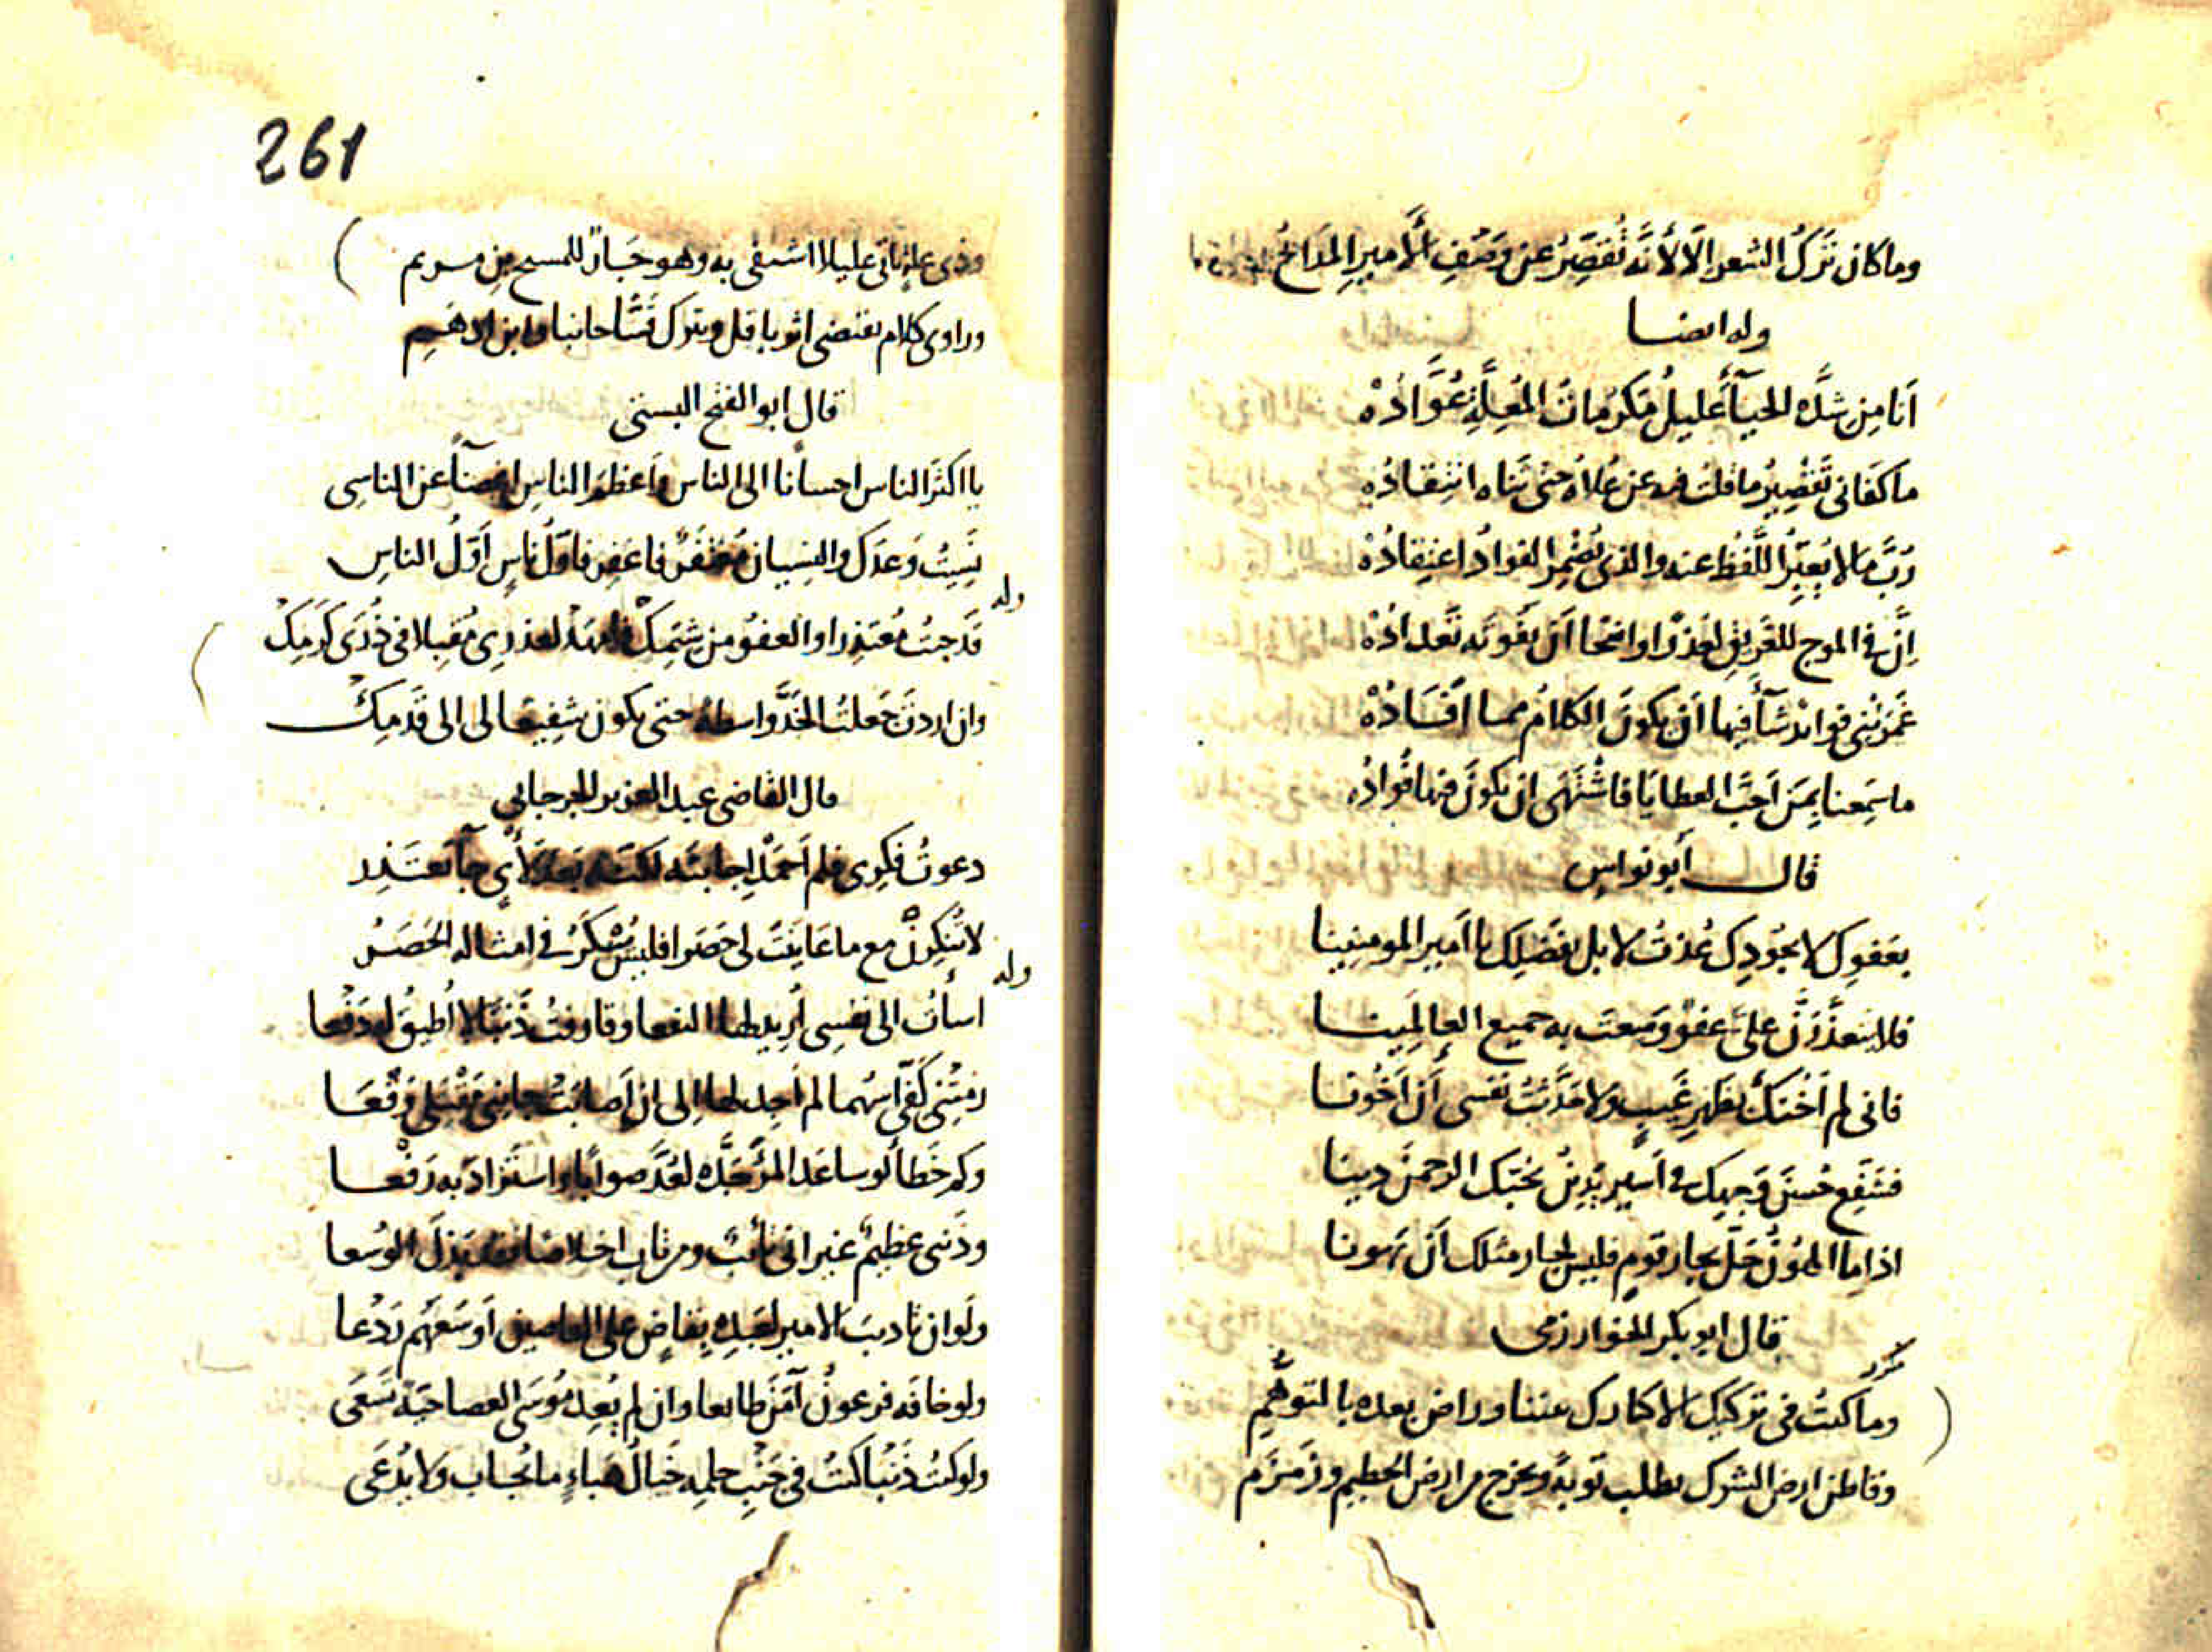 وما كان تَركُ الشعرِ الّا لأنَّه تُقَصِّرُ عن وَصْفِ الأميرِ المدَائحُ
وله ايضا
اَنا مِن شدَّه الحيآءَ عليلُ مَكرُماتُ المُعِلَّةِ عُوَّادُهْ
ما كفَانى تَقْصِيرُ ما قلتُ فيه عن عُلاهُ حتى ثناه انتِقادُه
رُبَّ ما لا يُعَبِّرُ اللَّفظُ عنه والذى يُضْمِرُ الفوادُ اعتِقادُهْ
اِنَّ فى الموج للغَرِيقِ لعذرًا واضحًا اَن يفُوتَه تَعدادُهْ
غَمَرَتْنى فوائدٌ شآءَ فيها اَن يكونَ الكلامُ مما اَفَادُهْ
ما سَمِعنا بِمَن اَحبَّ العطايَا فاشْتَهَى ان يكونَ فيها فُوادُه
قال أبو نواسٍ
بعَفوِكَ لا بجُودِكَ عُذتُ لا بل بفَضلِكَ يا اَمير المومنِينا
فلا يتعذَّرَنَّ علىَّ عفوٌ وَسِعتَ به جميع العالَمِينا
فانى لم اَخُنكَ بظَهرِ غَيبٍ ولا حَدَّثْتُ نفسى أَن اَخُونا
فشَفِّع حُسنَ وَجهِك فى اَسيرٍ يَدِينُ بحُبِّك الرحمنَ دِينا
اذا ما الهُونُ حَلَّ بجارِ قومٍ فليس لجار مثلك اَن يهونا
قال ابو بكر الخوارزمى
مكرر
وما كنتُ فى تركيكَ الا كتارك يقينا وراضٍ بعده بالتوهُّمِ
وقاطن ارض الشرك يطلب توبةً ويخرج من ارض الحطيم وزَمزَم
261
وذى علةٍ ياتى عليلا اشتفى به وهو جَارٌ للمسيح بنِ مريم
وراوى كلام يقتضى اثر باقل ويترك قُسًّا جانبا وابن الاهتم
قال ابو الفتح البستى
يا اكثرَ الناس احسانا الى الناس واَعظمَ الناسِ اغضآءً عن الناسِى
نَسِيتُ وَعدَك والنسيان مُغتفَرٌ فاغفِر فاوّلُ ناسٍ اَوّلُ الناسِ
وله
قَد جئتُ مُعتذِرا والعفوُ من شِيَمِكْ فامهَد لعذرى مَقِيلا فى ذُرَى كَرَمِكْ
وان اردتَ جَعلتُ الخَدَّ واسطةً حتى يكون شفِيعًا لى الى قَدَمِكْ
قال القاضى عبد العزيز الجرجانى
دعوتُ فكِرى فلم اَحمَدْ اِجابتَه لكنه بَعدَ لَأىٍ جآءَ يَعتَذِر
لا تُنكِرَنْ مع ما عَايَنتَ لى حَصَرا فليس يُنكَرُ فى امثاله الحَصَرُ
وله
اسأتُ الى نفسِى اُريد لها النفعا وقارفتُ ذَنبًا لا اُطيقُ له دَفْعا
رمَتْنى كَفّى اَسهُما لم اَجد لها الى ان اَصابَتْ جانبى مَقتلى وقْعَا
وكم خَطأٍ لو ساعَد المرءَ جَدُّه لعُدَّ صوابا واستَزادَ به رَفْعا
وذَنبى عظيمٌ غير انى تائبٌ ومن تاب اخلاصا فقد بَذلَ الوُسْعا
ولَوان تاديبَ الامير لعَبدِه يفاض على العاصين اَوسَعَهُم رَدْعا
ولو خافه فرعونُ آمَنَ طايعا وان لم يُعِد مُوسَى العصا حيّةً تَسعَى
ولو كنتُ ذَنْبًا كنتُ فى جَنْبِ حلمِه خَيالَ هَباءٍ ما يُجاب ولا يُدعَى